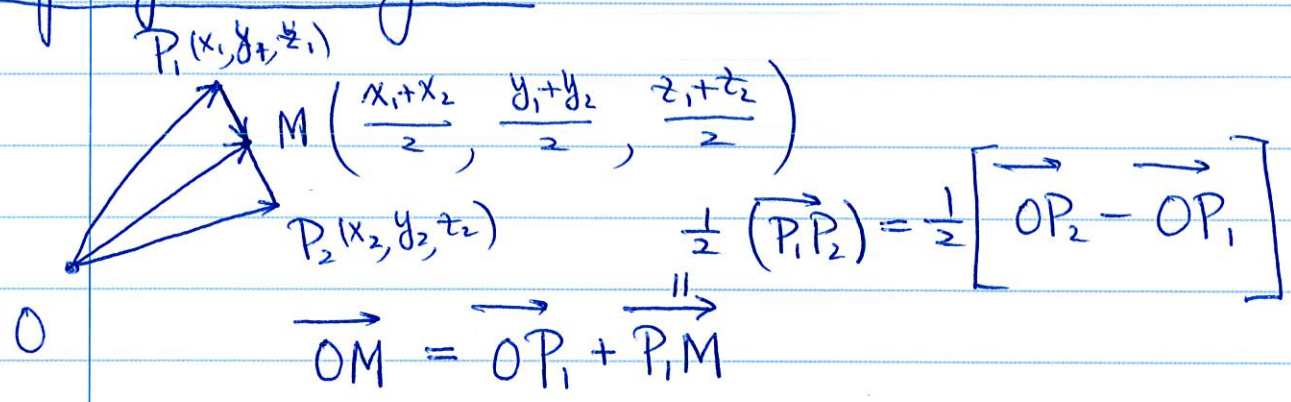 P₁(x₁,y₁,z₁)
M ( (x₁+x₂)/2 , (y₁+y₂)/2 , (z₁+z₂)/2 )
P₂(x₂,y₂,z₂)
½ (P₁P₂⃗) = ½ [ OP₂⃗ − OP₁⃗ ]
||
O
OM⃗ = OP₁⃗ + P₁M⃗